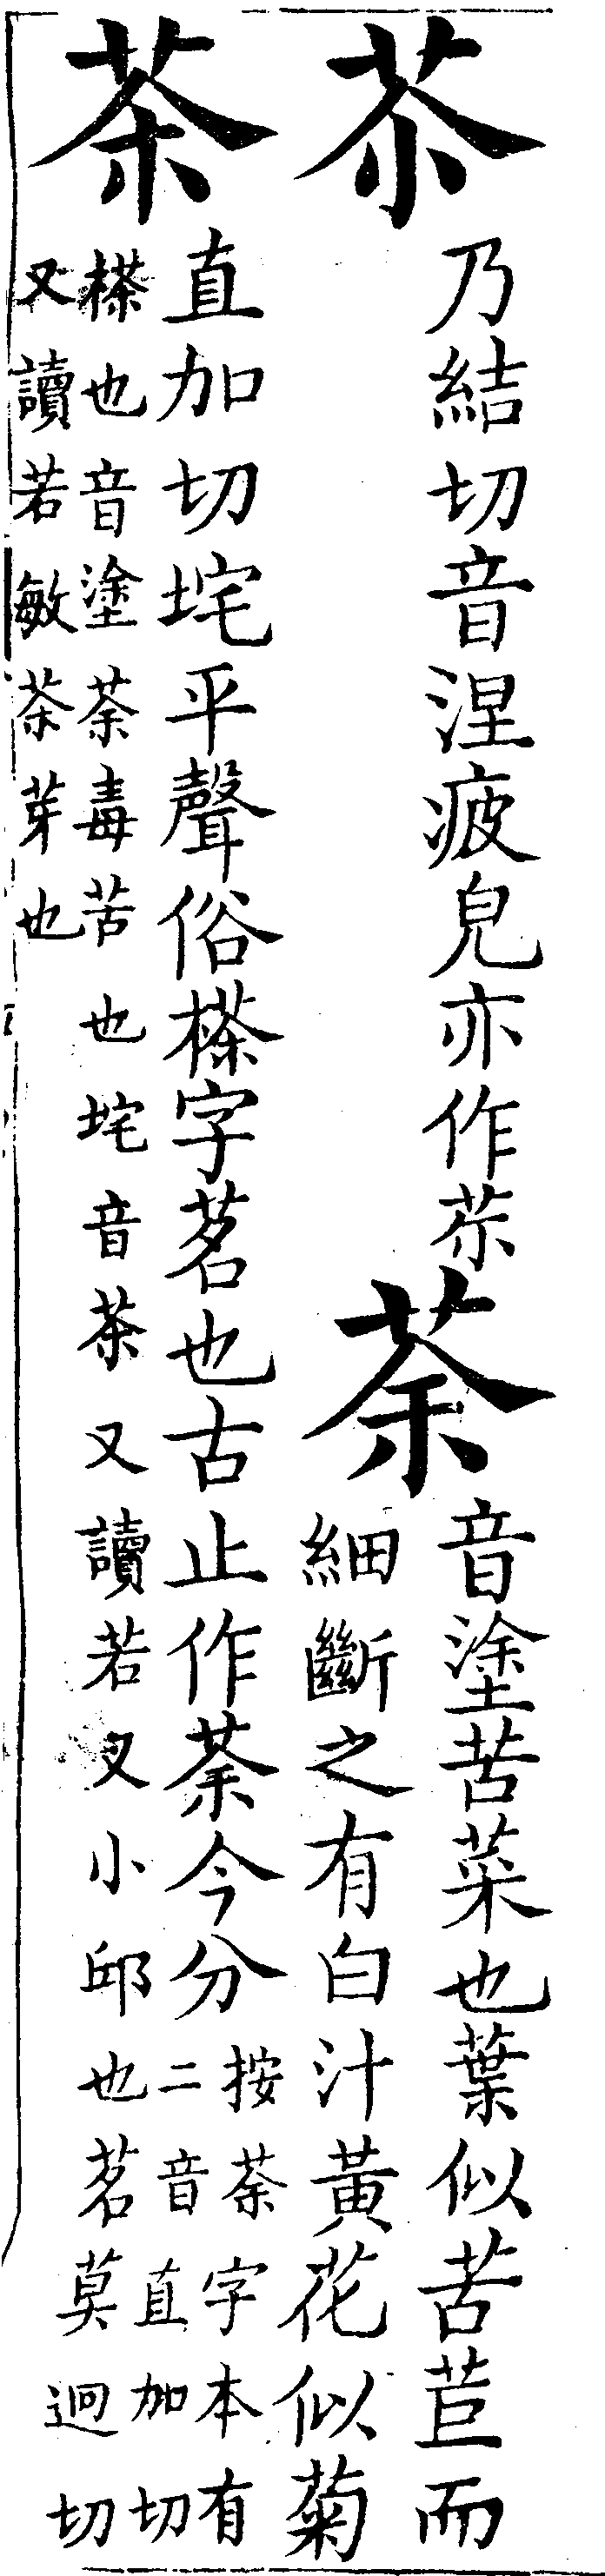 苶乃結切音涅疲皃亦作苶
荼音塗苦菜也葉似苦苣而
細斷之有白汁黃花似菊
茶直加切垞平聲俗𣘻字茗也古止作荼今分
按荼字本有
二音直加切
𣘻也音塗荼毒苦也垞音茶又讀若叉小邱也茗莫迥切
又讀若敏茶芽也